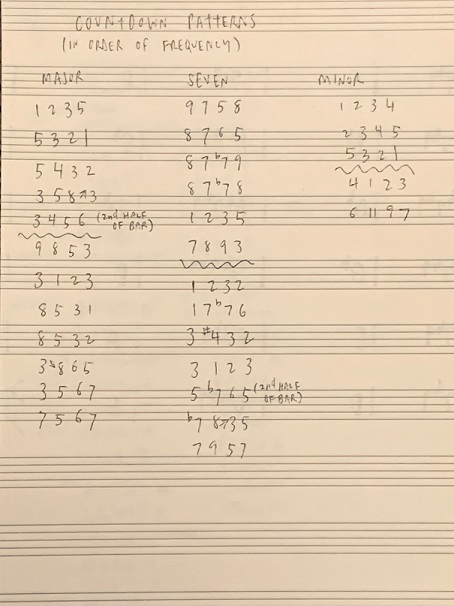 COUNTDOWN PATTERNS
(IN ORDER OF FREQUENCY)
MAJOR
1 2 3 5
5 3 2 1
5 4 3 2
3 5 8 ↗ 3
3 4 5 6 (2nd HALF OF BAR)
9 8 5 3
3 1 2 3
8 5 3 1
8 5 3 2
3 ↘ 8 6 5
3 5 6 7
7 5 6 7
SEVEN
9 7 5 8
8 7 6 5
8 7 ♭7 9
8 7 ♭7 8
1 2 3 5
7 8 9 3
1 2 3 2
1 7 ♭7 6
3 #4 3 2
3 1 2 3
5 ♭7 6 5 (2nd HALF OF BAR)
♭7 8 ↗ 3 5
7 9 5 7
MINOR
1 2 3 4
2 3 4 5
5 3 2 1
4 1 2 3
6 11 9 7